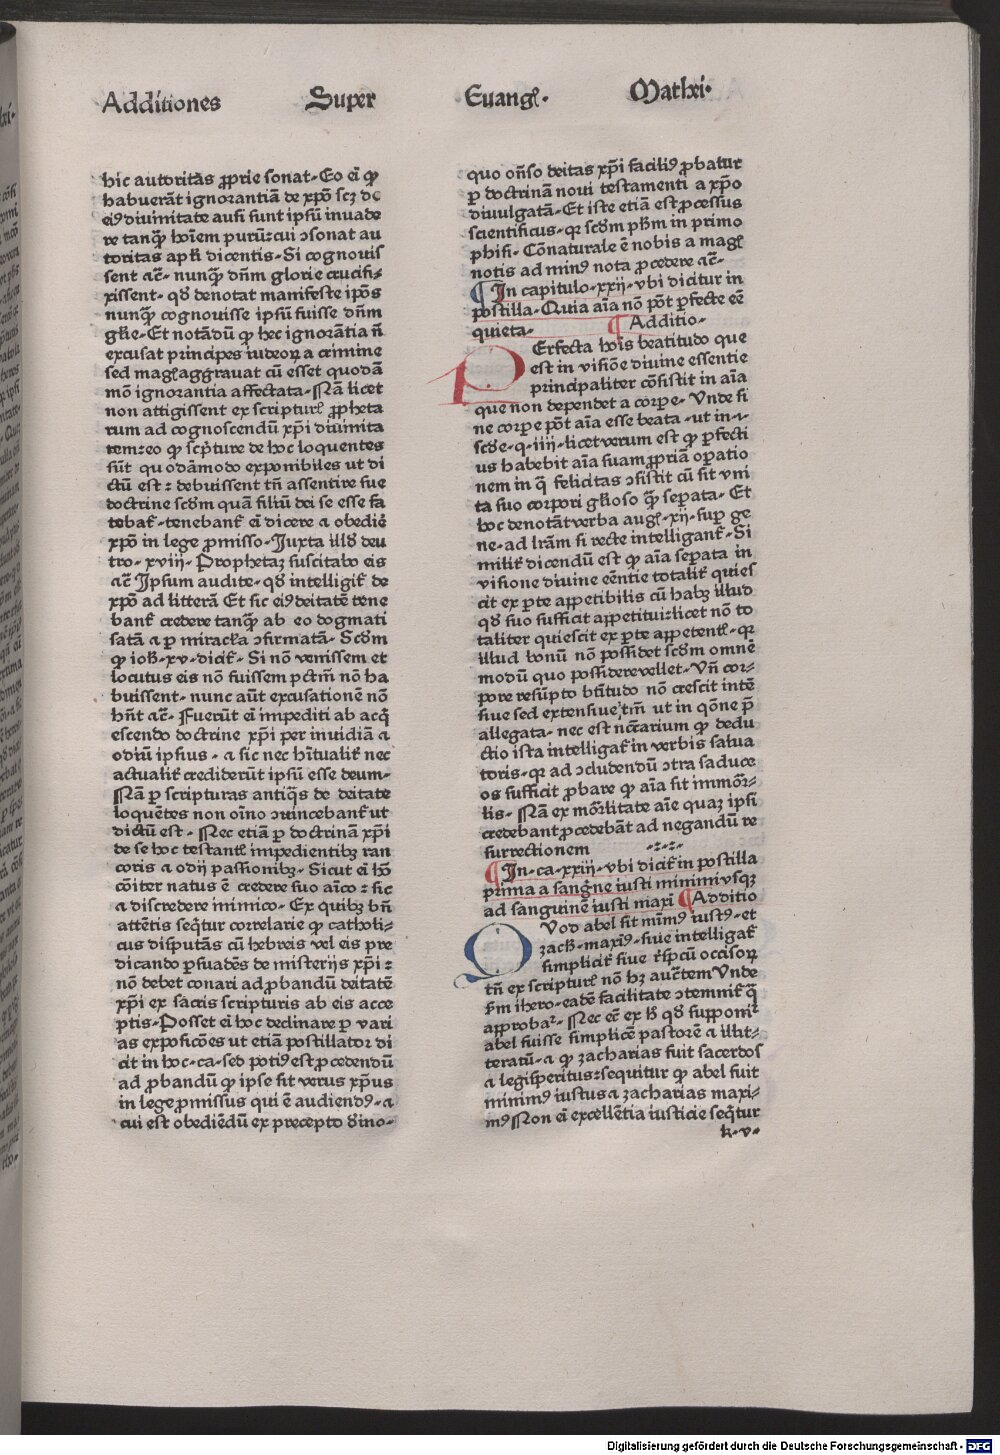 Additiones Super Euangł· Mathei·
hic autoritas ꝓprie sonat· Eo ei̅ ꝙ
habuera̅t ignorantia̅ de xp̅o scꝫ de
eiꝰ diuinitate ausi sunt ipsu̅ inuade
re tanq̅ꝫ hoi̅em puru̅: cui ꝯsonat au
toritas apl̅i dicentis· Si cognouis
sent ⁊c̅· nunq̅ꝫ dn̅m glorie crucifi⸗
xissent· qd̓ denotat manifeste ipo̅s
nunq̅ꝫ cognouisse ipsu̅ fuisse dn̅m
gl̅ie· Et nota̅du̅ ꝙ hec ignora̅tia n̅
excusat principes iudeoꝝ a crimine
sed magꝭ aggrauat cu̅ esset quoda̅
mo̅ ignorantia affectata· Na̅ licet
non attigissent ex scripturꝭ ꝓpheta
rum ad cognoscendu̅ xp̅i diuinita
tem: eo ꝙ sc̅pt̅re de hoc loquentes
su̅t quoda̅modo exponibiles ut di
ctu̅ est: debuissent tn̅ assentire sue
doctrine scd̓m qua̅ filiu̅ dei se esse fa
tebat̅· tenebant̅ ei̅ dicere ⁊ obedie̅
xp̅o in lege ꝓmisso· Juxta illd̓ deu
tro· xviij· Prophetaꝫ suscitabo eis
⁊c̅ Jpsum audite· qd̓ intelligit̅ de
xp̅o ad littera̅ Et sic eiꝰ deitate̅ tene
bant̅ credere tanq̅ꝫ ab eo dogmati
sata̅ ⁊ ꝑ miracl̅a ꝯfirmata̅· Scd̓m
ꝙ ioh̅· xv· dicit̅· Si no̅ venissem et
locutus eis no̅ fuissem pctm̅ no̅ ha
buissent· nunc au̅t excusatione̅ no̅
hn̅t ⁊c̅· Fueru̅t ei̅ impediti ab acq̅
escendo doctrine xp̅i per inuidia̅ ⁊
odiu̅ ipsius· ⁊ sic nec hi̅tualit̅ nec
actualit̅ crediderūt ipsu̅ esse deum·
Na̅ ꝑ scripturas antiq̅s de deitate
loque̅tes non oi̅no ꝯuincebant̅ ut
dictu̅ est· Nec etia̅ ꝑ doctrina̅ xp̅i
de se hoc testantꝭ impedientibꝫ ran
coris ⁊ odij passionibꝫ· Sicut ei̅ ho̅
co̅iter natus e̅ credere suo ai̅co: sic
⁊ discredere inimico· Ex quibꝫ bn̅
atte̅tis seq̅tur correlarie ꝙ catholi⸗
cus disputa̅s cu̅ hebreis vel eis pre
dicando ꝑsuade̅s de misterijs xp̅i:
no̅ debet conari ad ꝓbandu̅ deitate̅
xp̅i ex sacris scripturis ab eis acce
ptis· Posset ei̅ hoc declinare ꝑ vari
as expofico̅es ut etia̅ postillator di
cit in hoc· ca· sed potiꝰ est ꝓcedendu̅
ad ꝓbandu̅ ꝙ ipse sit verus xp̅us
in lege ꝓmissus qui e̅ audiendꝰ· ⁊
cui est obedie̅du̅ ex precepto diuo·
quo on̅so deitas xp̅i faciliꝰ ꝓbatur
ꝑ doctrina̅ noui testamenti a xp̅o
diuulgata̅· Et iste etia̅ est ꝓcessus
scientificus· qꝛ scd̓m ph̅m in primo
phisi· Co̅naturale e̅ nobis a magꝭ
notis ad minꝰ nota ꝓcedere ⁊c̅·
¶ Jn capitulo· xxij· vbi dicitur in
postilla· Quia ai̅a no̅ po̅t ꝑfecte ee̅
quieta· ¶ Additio·
PErfecta ho̅is beatitudo que
est in visio̅e diuine essentie
principaliter co̅sistit in ai̅a
que non dependet a corpe· Vnde si
ne corpe po̅t ai̅a esse beata· ut in· i·
scd̓e· q· iiij· licet verum est ꝙ ꝑfecti
us habebit ai̅a suam ꝓpria̅ oꝑatio
nem in q̅ felicitas ꝯsistit cu̅ sit vni
ta suo corpori gl̅ioso q̅ꝫ seꝑata· Et
hoc denota̅t verba augꝭ· xij· suꝑ ge
ne· ad lr̅am si recte intelligant̅· Si
milit̅ dicendu̅ est ꝙ ai̅a seꝑata in
visione diuine ee̅ntie totalit̅ quies
cit ex ꝑte appetibilis cu̅ habꝫ illud
qd̓ suo sufficit appetitui: licet no̅ to
taliter quiescit ex ꝑte appetentꝭ· qꝛ
illud bonu̅ no̅ possidet scd̓m omne̅
modu̅ quo possidere vellet· Vn̅ cor⸗
pore resu̅pto bt̅itudo no̅ crescit inte̅
siue sed extensiue tm̅ ut in qo̅ne p̅
allegata· nec est nc̅c̅arium ꝙ dedu
ctio ista intelligat̅ in verbis salua
toris· qꝛ ad ꝯcludendu̅ ꝯtra saduce
os sufficit ꝓbare ꝙ ai̅a sit immo̅r⸗
lis· Na̅ ex mo̅rlitate ai̅e quaꝫ ipsi
credebant ꝓcedeba̅t ad negandu̅ re
surrectionem
¶ Jn· ca· xxiij· vbi dicit̅ in postilla
prima a sangne iusti minimi vsqꝫ
ad sanguine̅ iusti maxi ¶ Additio
QUod abel sit mi̅mꝰ iustꝰ· et
zach̅· maxiꝰ· siue intelligat̅
simplicit̅ siue r̅spcu̅ occisoꝝ
tn̅ ex scripturꝭ no̅ hꝫ auc̅tem Vnde
s̅m ihero· eade̅ facilitate ꝯtemnit̅ q̅
approbaꝛ̅· Nec ee̅ ex h̅ qd̓ supponiꝛ̅
abel fuisse simplice̅ pastore̅ ⁊ illit⸗
teratu̅· ⁊ ꝙ zacharias fuit sacerdos
⁊ legisꝑitus: sequitur ꝙ abel fuit
minimꝰ iustus ⁊ zacharias maxi⸗
mꝰ Non ei̅ excelle̅tia iusticie seq̅tur
k· v·
Digitalisierung gefördert durch die Deutsche Forschungsgemeinschaft - DFG